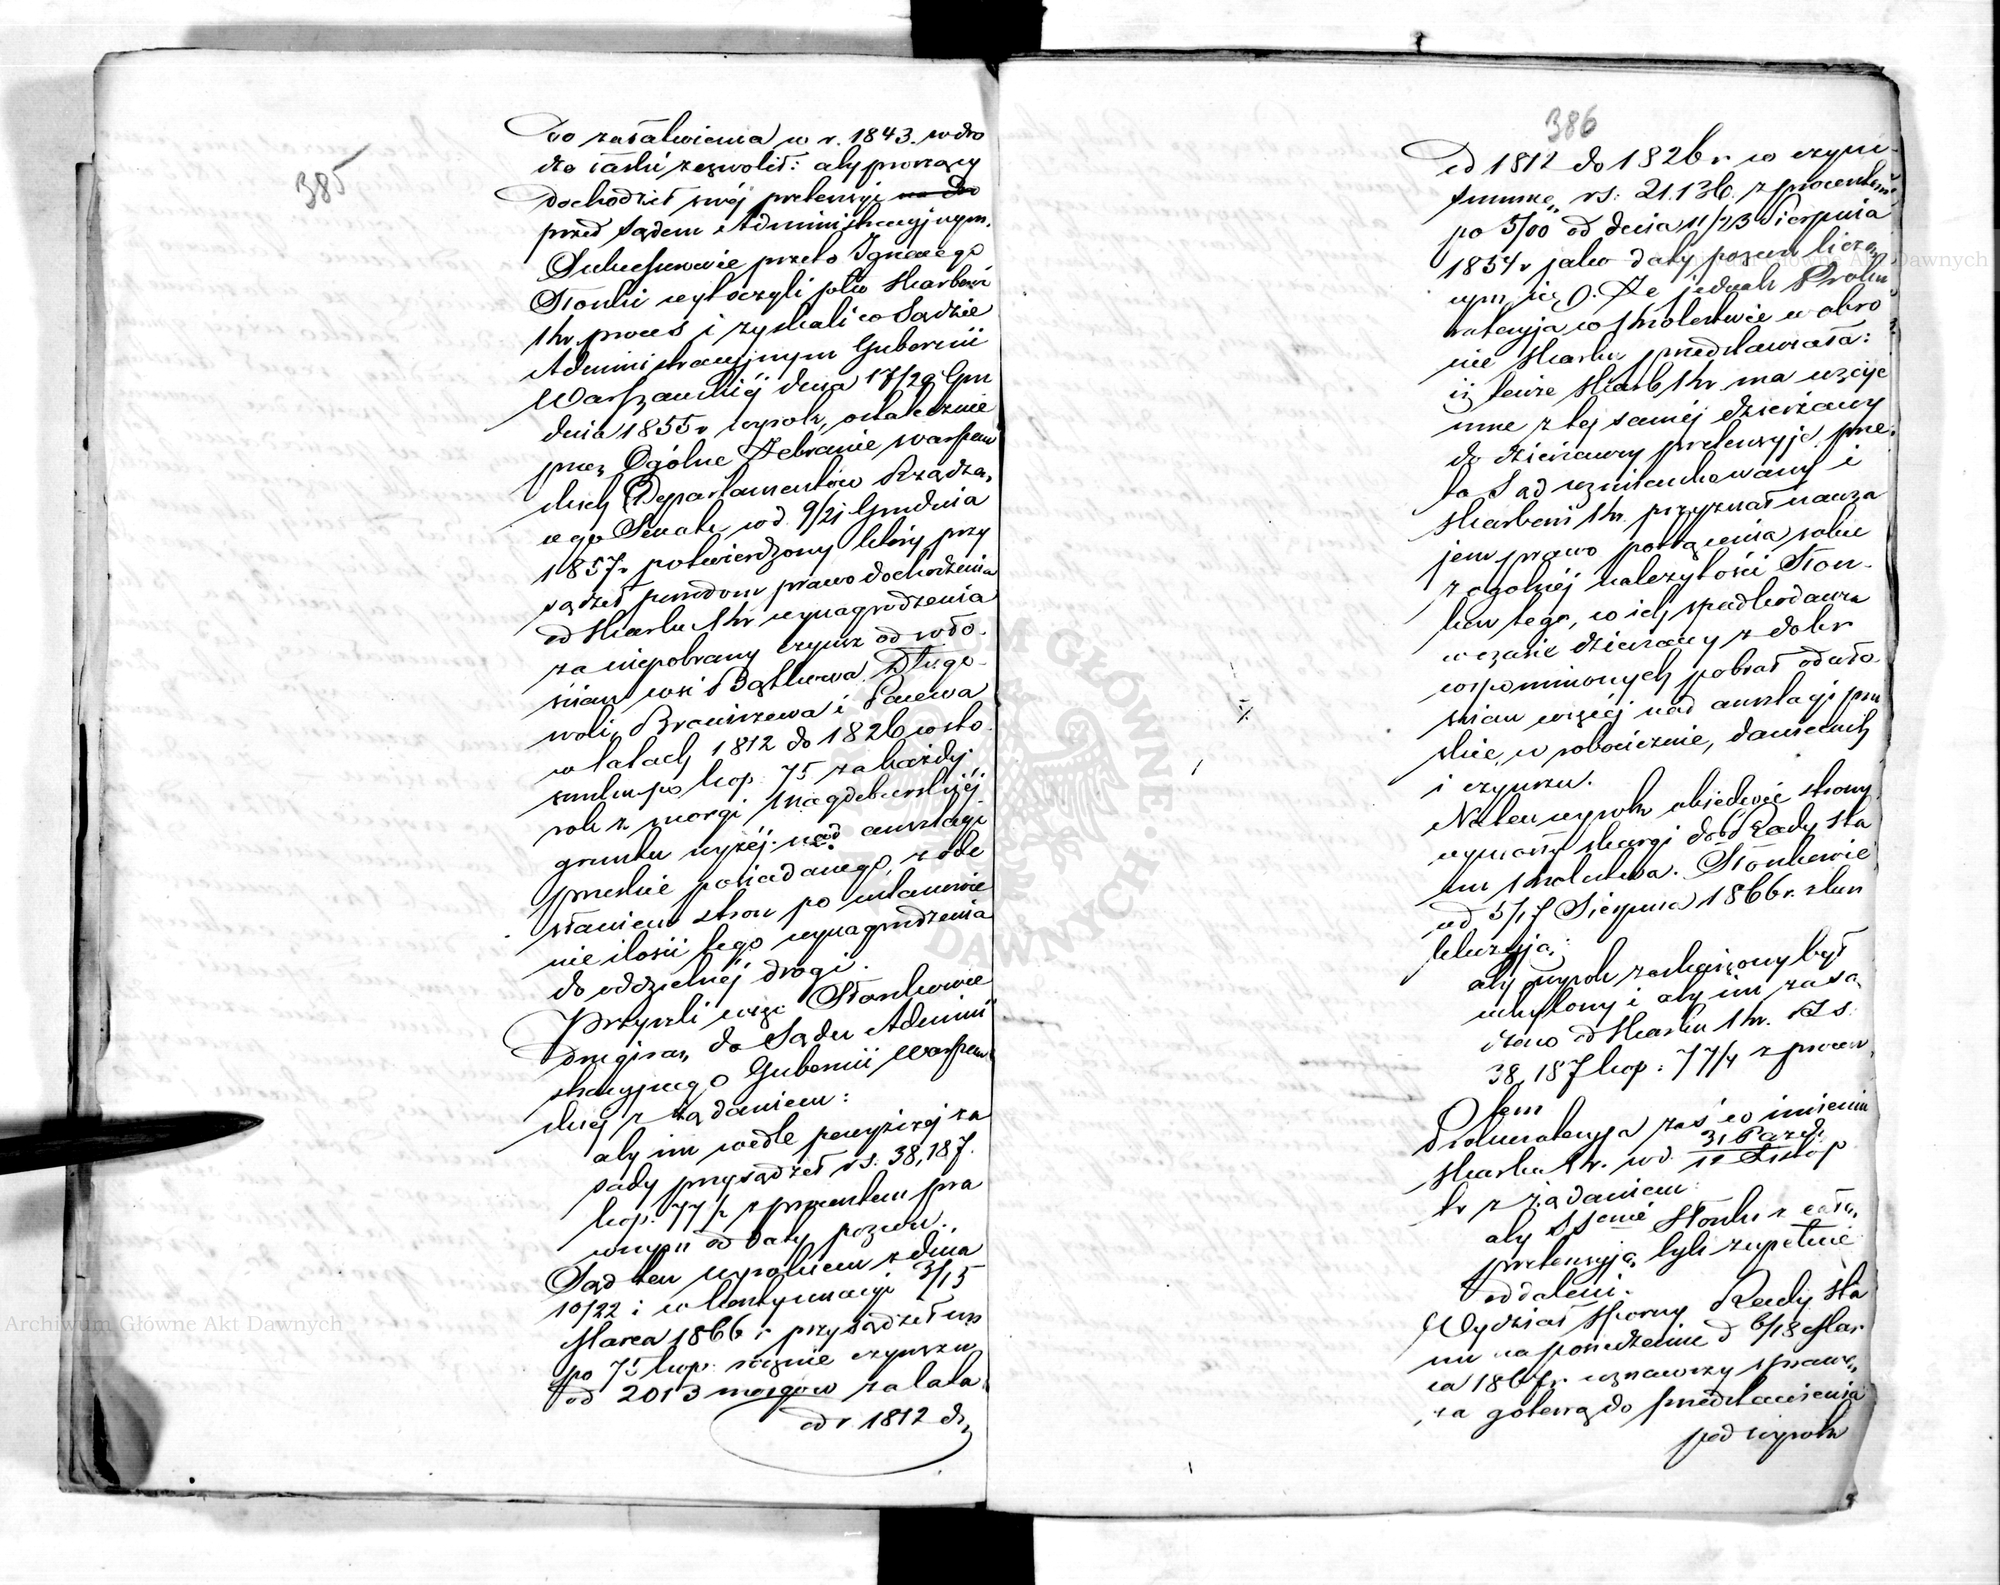 385
do załatwienia w r. 1843. w dro
dze łaski zezwolił: aby proszący
dochodził swéj pretensyi na dro
przed Sądem Administracyjnym.
Sukcesorowie przeto Ignacego
Słonki wytoczyli pko Skarbowi
Kr. proces i zyskali w Sądzie
Administracyjnym Gubernii
Warszawskiéj dnia 17/29 Gru
dnia 1855 r wyrok, ostatecznie
przez Ogólne Zebranie Warszaw
skich Departamentów Rządzą,
cego Senatu w d. 9/21 Grudnia
1857 r potwierdzony który przy
sądził powodom prawo dochodzenia
od Skarbu Kr wynagrodzenia
za niepobrany czynsz od wło-
ścian wsi Bątkowa Długo-
woli, Braciszewa i Pacewa
w latach 1812 do 1826 w sto
sunku po kop. 75 za każdy
rok z morgi Magdeburskiéj
gruntu wyżéj nad anszlagi
pruskie posiadanego, z ode
słaniem stron po ustanowie
nie ilości tego wynagrodzenia
do oddzielnéj drogi.
Przyszli więc Słonkowie
drugi raz do Sądu Admini
stracyjnego Gubernii Warszaw
skiej z żądaniem:
aby im wedle powyższej za
sady przysądził rs. 38,187.
kop. 77 1/2 z procentem pra
wnym od daty pozwu.,
Sąd ten wyrokiem z dnia
10/22 i w kontynuacyi 3/15
Marca 1866 r przysądził im
po 75 kop. rocznie czynszu
od 2013 morgów za lata
od r. 1812 do
386
od 1812 do 1826 r w czyni-
summę rs: 21.136. z procentem
po 5/00 od dnia 11/23 Sierpnia
1854 r jako daty pozwu liczą,
cym się. Że jednak Proku
ratoryja w Królestwie w obro
nie Skarbu przedstawiała:
iż tenże Skarb Kr ma wzaje
mne z tej saméj dzierżawy
do dzierżawcy pretensyje, prze.
to Sąd wzmiankowany i
Skarbowi Kr. przyznał nawza
jem prawo potrącenia sobie
z ogólnéj należytości Słon-
ków tego, co ich spadkodawca
w czasie dzierżawy z dóbr
wspomnionych pobrał od wło
ścian więcéj nad anszlagi pru
skie, w robociznie, daninach
i czynszu.
Na ten wyrok obiedwie strony
wyniosły skargi do b. Rady Sta
nu Królestwa. Słonkowie
od 5/17 Sierpnia 1866 r. z kon
kluzyją:
aby wyrok zaskarżony był
uchylony i aby im zasą,
dzono od Skarbu Kr. Rs.
38,187 kop: 77 1/2 z procen,
tem
Prokuratoryja zaś w imieniu
Skarbu Kr. w d. 31 Paźdz.
12 Listop
tr z żądaniem:
aby SSowie Słonki z całą,
pretensyją byli zupełnie
oddaleni.
Wydział Sporny Rady Sta
nu na posiedzeniu d 6/18 Mar
ca 1867 r. uznawszy sprawę,
za gotową do przedstawienia
pod wyrok
Archiwum Główne Akt Dawnych